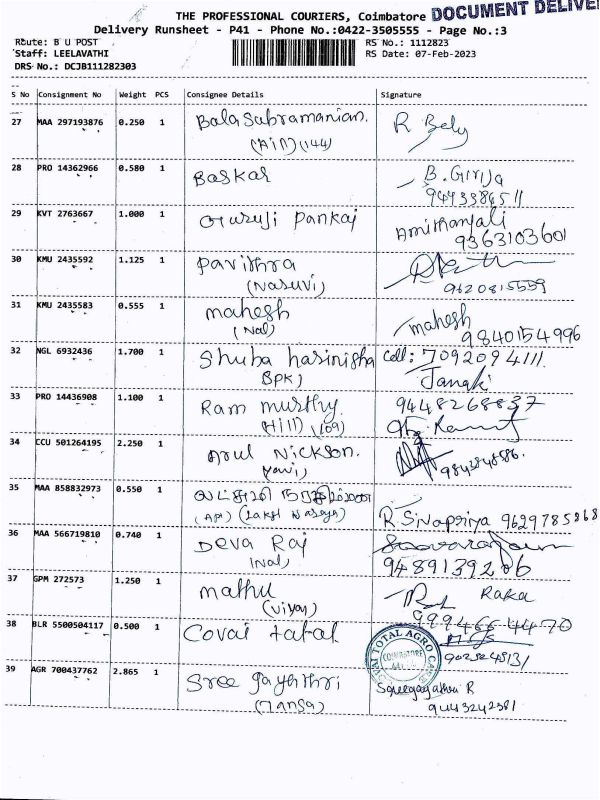 THE PROFESSIONAL COURIERS, Coimbatore DOCUMENT DELIVE
Delivery Runsheet - P41 - Phone No.:0422-3505555 - Page No.:3
Route: B U POST
RS No.: 1112823
Staff: LEELAVATHI
RS Date: 07-Feb-2023
DRS No.: DCJB111282303
S No Consignment No Weight PCS Consignee Details Signature
27 MAA 297193876 0.250 1 Bala Subramanian. R
(144)
28 PRO 14362966 0.580 1 Baskar B. Girija
9443386511
29 KVT 2763667 1.000 1 Guruji Pankaj Amithanjali
9363103601
30 KMU 2435592 1.125 1 Pavithra
(Naruvi) 9620815559
31 KMU 2435583 0.555 1 mahesh mahesh
(Nal) 9840154996
32 NGL 6932436 1.700 1 Shuba harinisha Cell: 7092094111.
(BPK) Janaki
33 PRO 14436908 1.100 1 Ram murthy 9448268837
(Hill) (109)
34 CCU 501264195 2.250 1 Arul Nickson.
35 MAA 858832973 0.550 1
R. Sivapriya 9629785868
36 MAA 566719810 0.740 1 Deva Raj
(Nal) 9489139206
37 GPM 272573 1.250 1 mathu Raka
(Vijay) 999466-4470
38 BLR 5500504117 0.500 1 Covai total
VAI TOTAL AGRO CARE
COIMBATORE
39 AGR 700437762 2.865 1 Sree gayththri Sreegayathri R
(Mansa) 9443242381